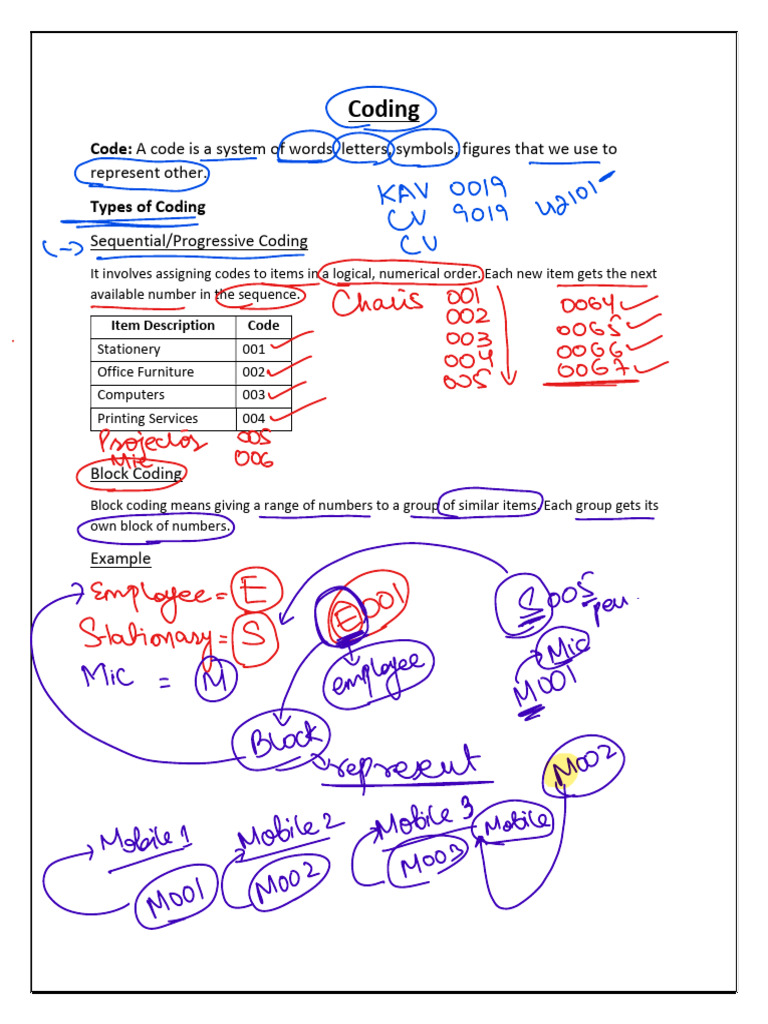 Coding
Code: A code is a system of words, letters, symbols, figures that we use to
represent other.
KAV 0019
Types of Coding
CV 9019 42101
CV
Sequential/Progressive Coding
It involves assigning codes to items in a logical, numerical order. Each new item gets the next
available number in the sequence.
Chairs 001 0064
002 0065
003 0066
004 0067
005
Item Description Code
Stationery 001
Office Furniture 002
Computers 003
Printing Services 004
Projectors 005
Mic 006
Block Coding
Block coding means giving a range of numbers to a group of similar items. Each group gets its
own block of numbers.
Example
Employee = E E001 S005 pen
Stationary = S Mic
Mic = M employee M001
Block
represent M002
Mobile 1 Mobile 2 Mobile 3 Mobile
M001 M002 M003